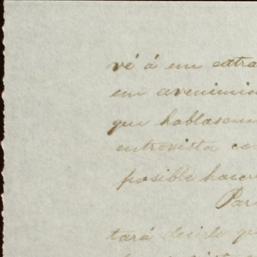 vé á un extra
un avenimie
que hablasem
entrevista co
posible hacer
Par
tará decirle qu